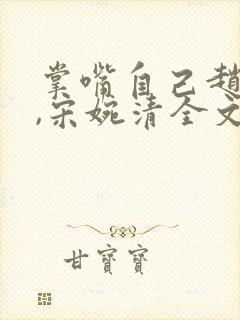 掌嘴自己趙
,宋婉清全文
甘寶寶